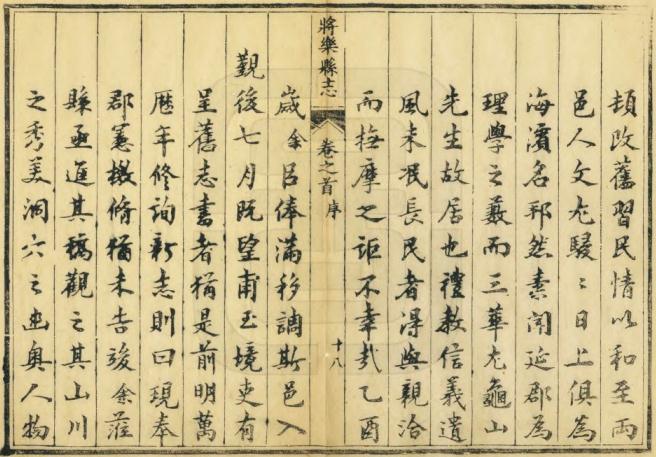 頓改舊習民情以和至兩
邑人文尤駸〻日上俱為
海濱名邦然素聞延郡為
理學之藪而三華尤龜山
先生故居也禮教信義遺
風未泯長民者得與親洽
而撫摩之詎不幸哉乙酉
歲余吕俸滿移調斯邑入
將樂縣志
卷之首序
十八
覲後七月既望甫至境吏有
呈舊志書者猶是前明萬
曆年修詢新志則曰現奉
郡憲檄脩猶未告竣余蒞
縣亟進其稿觀之其山川
之秀美洞穴之幽奥人物